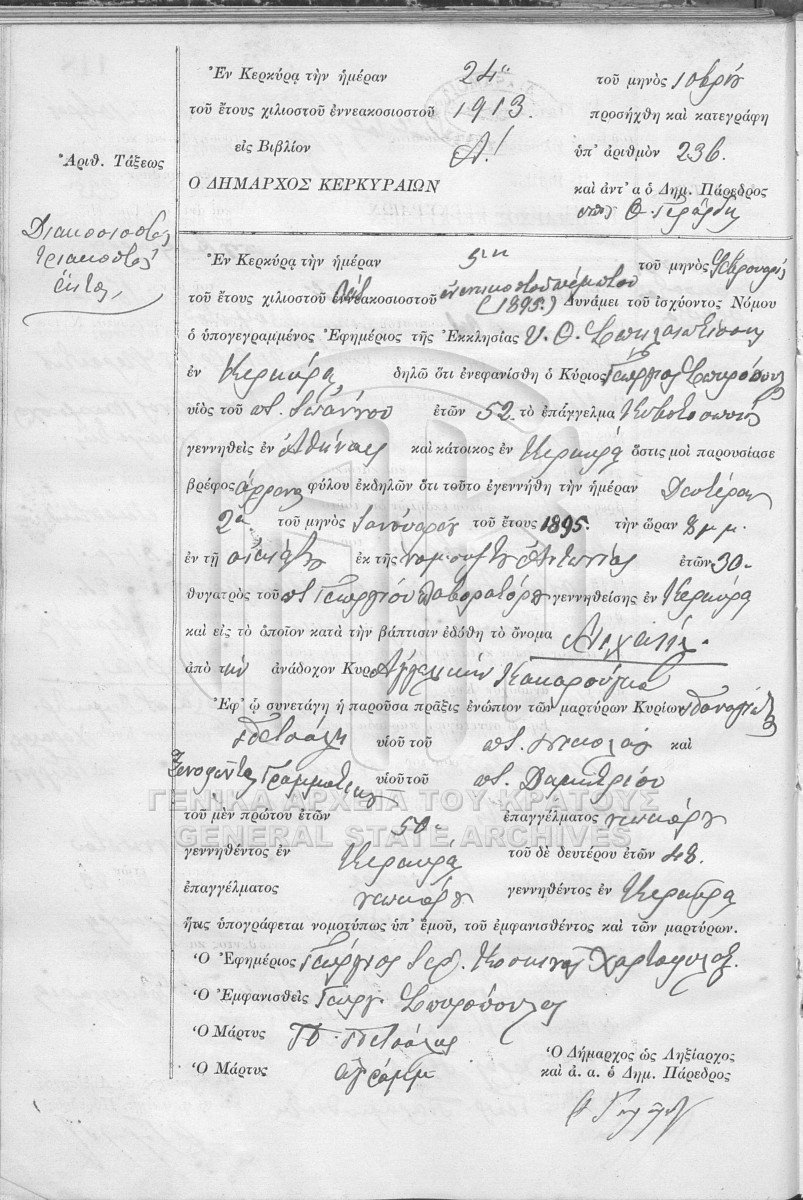 Ἐν Κερκύρᾳ τὴν ἡμέραν 24ην τοῦ μηνὸς
τοῦ ἔτους χιλιοστοῦ ἐννεακοσιοστοῦ 1913. προσήχθη καὶ κατεγράφη
εἰς Βιβλίον Α! ὑπ' ἀριθμὸν 236.
Ἀριθ. Τάξεως
Ο ΔΗΜΑΡΧΟΣ ΚΕΡΚΥΡΑΙΩΝ καὶ ἀντ' α ὁ Δημ. Πάρεδρος
Διακοσιοστὸς
τριακοστὸς
ἕκτος
Ἐν Κερκύρᾳ τὴν ἡμέραν 5ην τοῦ μηνὸς Φεβρουαρίου
τοῦ ἔτους χιλιοστοῦ ἐννεακοσιοστοῦ ἐνενηκοστοῦ πέμπτου
(1895.) Δυνάμει τοῦ ἰσχύοντος Νόμου
ὁ ὑπογεγραμμένος Ἐφημέριος τῆς Ἐκκλησίας Υ. Θ. Σπηλαιωτίσσης
ἐν Κερκύρᾳ δηλῶ ὅτι ἐνεφανίσθη ὁ Κύριος Γεώργιος Σπυρόπουλος
υἱὸς τοῦ ποτ. Ἰωάννου ἐτῶν 52 τὸ ἐπάγγελμα Κιβωτοποιός
γεννηθεὶς ἐν Ἀθήναις καὶ κάτοικος ἐν Κερκύρᾳ ὅστις μοὶ παρουσίασε
βρέφος ἄρρενος φύλου ἐκδηλῶν ὅτι τοῦτο ἐγεννήθη τὴν ἡμέραν Δευτέραν
2α τοῦ μηνὸς Ἰανουαρίου τοῦ ἔτους 1895. τὴν ὥραν 8 μ μ.
ἐν τῇ οἰκίᾳ του ἐκ τῆς νομ. συζ. του Ἀντωνίας ἐτῶν 30
θυγατρὸς τοῦ ποτ Γεωργίου γεννηθείσης ἐν Κερκύρᾳ
καὶ εἰς τὸ ὁποῖον κατὰ τὴν βάπτισιν ἐδόθη τὸ ὄνομα Μιχαὴλ.
ἀπὸ τὴν ἀνάδοχον Κυρ Ἀγγελικὴν
Ἐφ' ᾧ συνετάγη ἡ παροῦσα πρᾶξις ἐνώπιον τῶν μαρτύρων Κυρίων Παναγιώτου
Πετσάλη υἱοῦ τοῦ ποτ. Νικολάου καὶ
Ξενοφῶντος Γραμματικοῦ υἱοῦ τοῦ ποτ. Δημητρίου
ΓΕΝΙΚΑ ΑΡΧΕΙΑ ΤΟΥ ΚΡΑΤΟΥΣ
τοῦ μὲν πρώτου ἐτῶν 50 ἐπαγγέλματος νεωκόρου
GENERAL STATE ARCHIVES
γεννηθέντος ἐν Κερκύρᾳ τοῦ δὲ δευτέρου ἐτῶν 48.
ἐπαγγέλματος νεωκόρου γεννηθέντος ἐν Κερκύρᾳ
ἥτις ὑπογράφεται νομοτύπως ὑπ' ἐμοῦ, τοῦ ἐμφανισθέντος καὶ τῶν μαρτύρων.
Ὁ Ἐφημέριος Γεώργιος Ἱερ. Κοσκινᾶς Χαρτοφύλαξ.
Ὁ Ἐμφανισθεὶς Γεώργ. Σπυρόπουλος
Ὁ Μάρτυς Π. Πετσάλης
Ὁ Μάρτυς
Ὁ Δήμαρχος ὡς Ληξίαρχος
καὶ ἀ. α. ὁ Δημ. Πάρεδρος